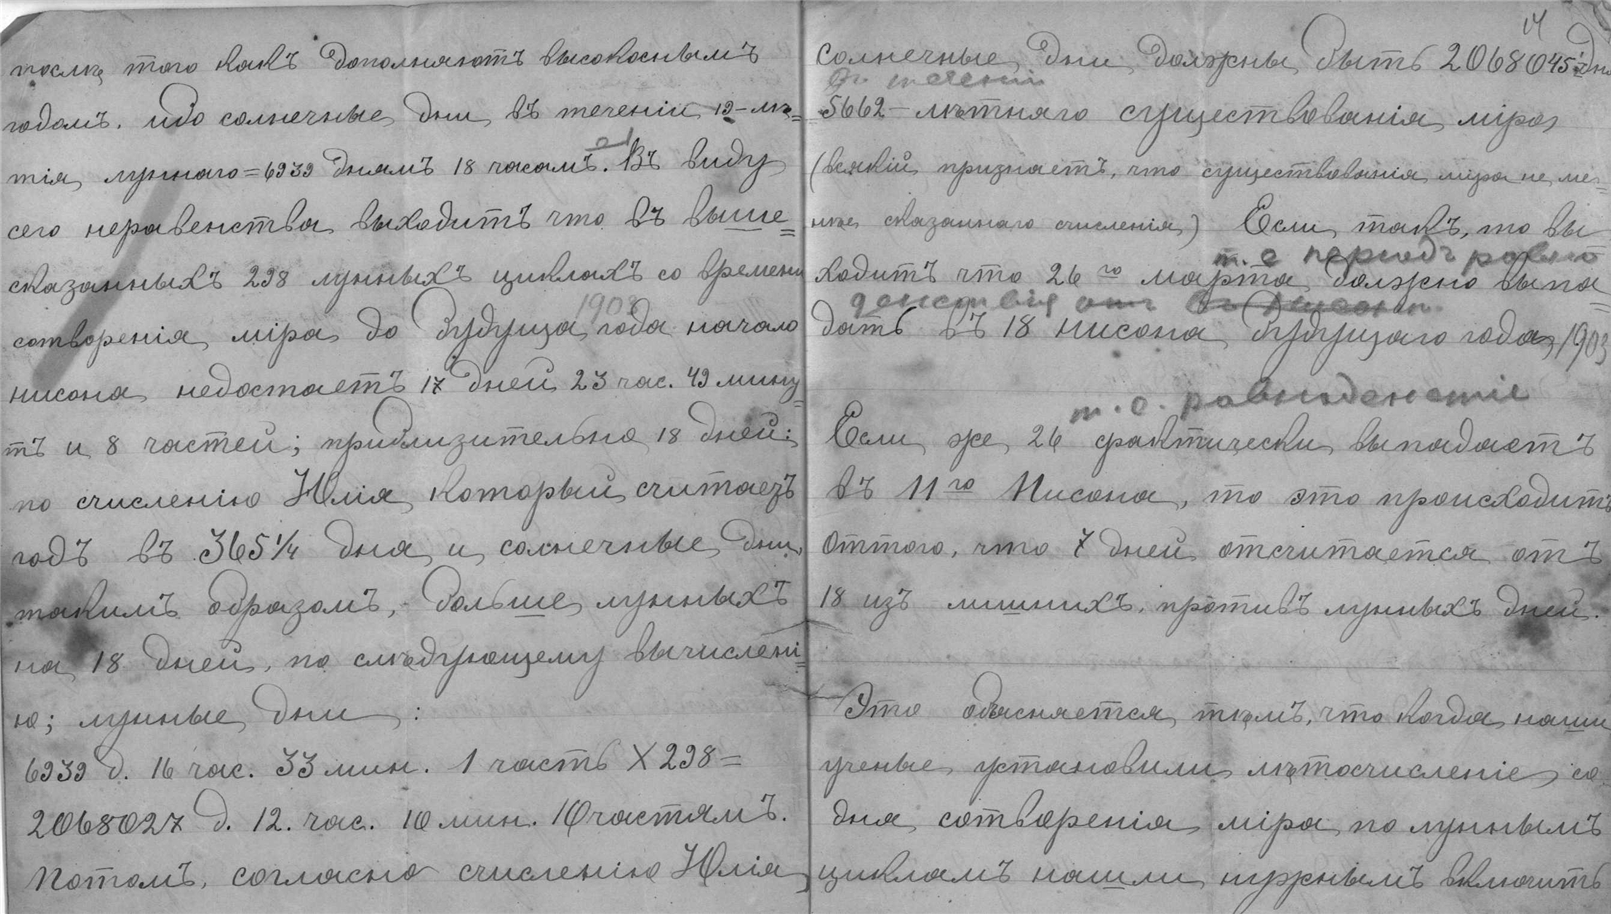 послѣ того какъ дополняютъ высокоснымъ
годомъ. ибо солнечные дни въ теченіи 19-лѣ=
тія луннаго = 6939 днямъ 18 часамъ. Въ виду
сего неравенства выходитъ что въ выше=
сказанныхъ 298 лунныхъ циклахъ со времени
1903
сотворенія міра до будуща года начало
нисона недостаетъ 17 дней 23 час. 49 мину=
тъ и 8 частей; приблизительно 18 дней:
по счисленію Юлія который считаетъ
годъ въ 365 1/4 дня и солнечные дни
такимъ образомъ, больше лунныхъ
на 18 дней, по слѣдующему вычислені=
ю; лунные дни :
6939 д. 16 час. 33 мин. 1 часть X 298 =
2068027 д. 12. час. 10 мин. 10 частямъ.
Потомъ, согласно счисленію Юлія
14
солнечные дни должны быть 2068045 1/2 дн
въ теченіи
5662-лѣтняго существованія міра
(всякій признаетъ, что существованія міра не ме=
нѣе сказаннаго счисленія) Если такъ, то вы=
т. е періодъ равно
ходитъ что 26го марта должно выпа=
денствія
дать въ 18 нисона будущаго года, 1903
т. е. равноденствіе
Если же 26 фактически выпадаетъ
въ 11го Нисона, то это происходитъ
оттого, что 7 дней отсчитается отъ
18 изъ лишнихъ противъ лунныхъ дней.
Это объясняется тѣмъ, что когда наши
ученые установили лѣтосчисленіе со
дня сотворенія міра по луннымъ
цикламъ нашли нужнымъ включить